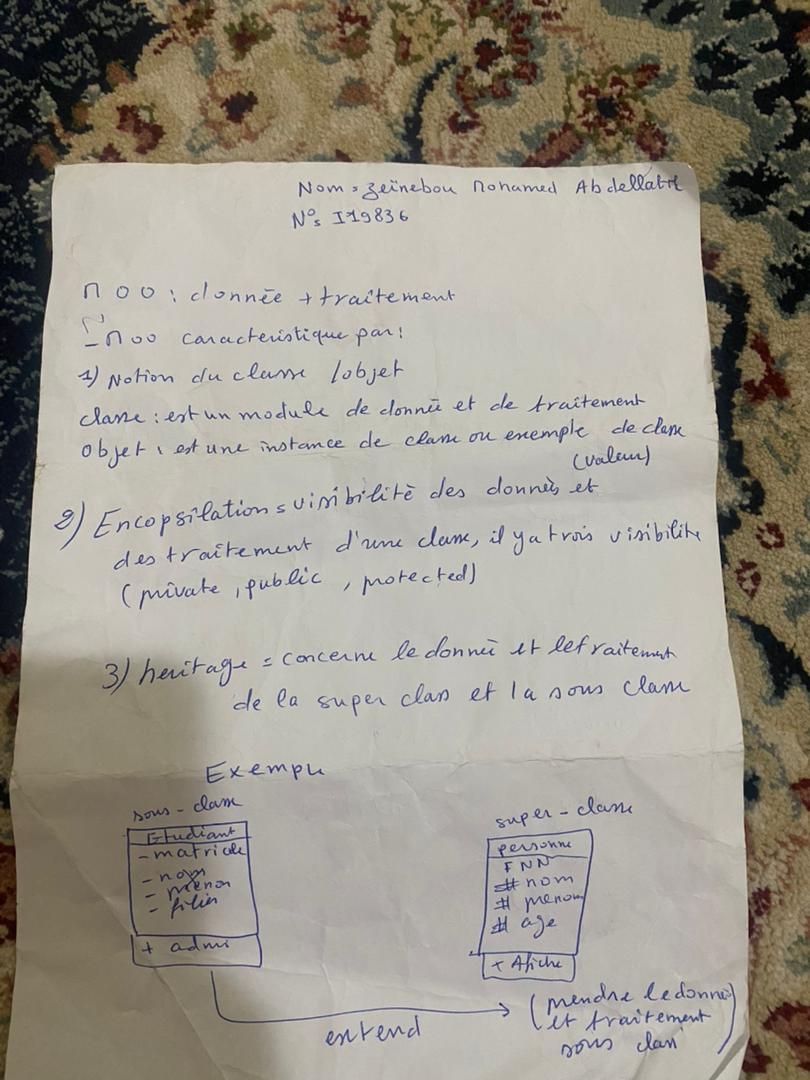 Nom = Zeïnebou Mohamed Abdellahi
N°s I19836
MOO : donnée + traitement
- MOO caracteristique par :
1) Notion du classe / objet
classe : est un module de donnée et de traitement
objet : est une instance de classe ou exemple de classe
(valeur)
2) Encopsilation = visibilité des données et
des traitement d'une classe, il y a trois visibilite
(private, public, protected)
3) heritage = concerne le donnée et le traitement
de la super class et la sous classe
Exemple
sous - classe
Etudiant
- matricule
- nom
- prénom
- filier
+ admi
super - classe
personne
INN
# nom
# prenom
# age
+ Afiche
extend
(prendre le donnée
et traitement
sous class)